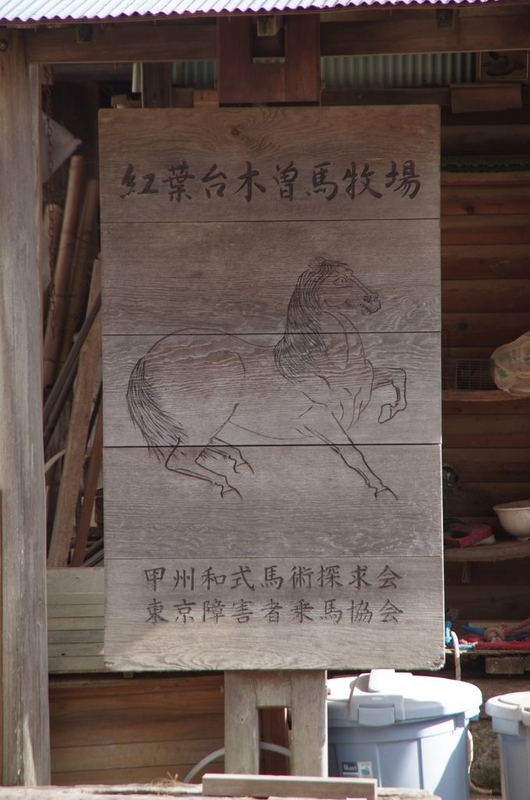 紅葉台木曽馬牧場
甲州和式馬術探求会
東京障害者乗馬協会